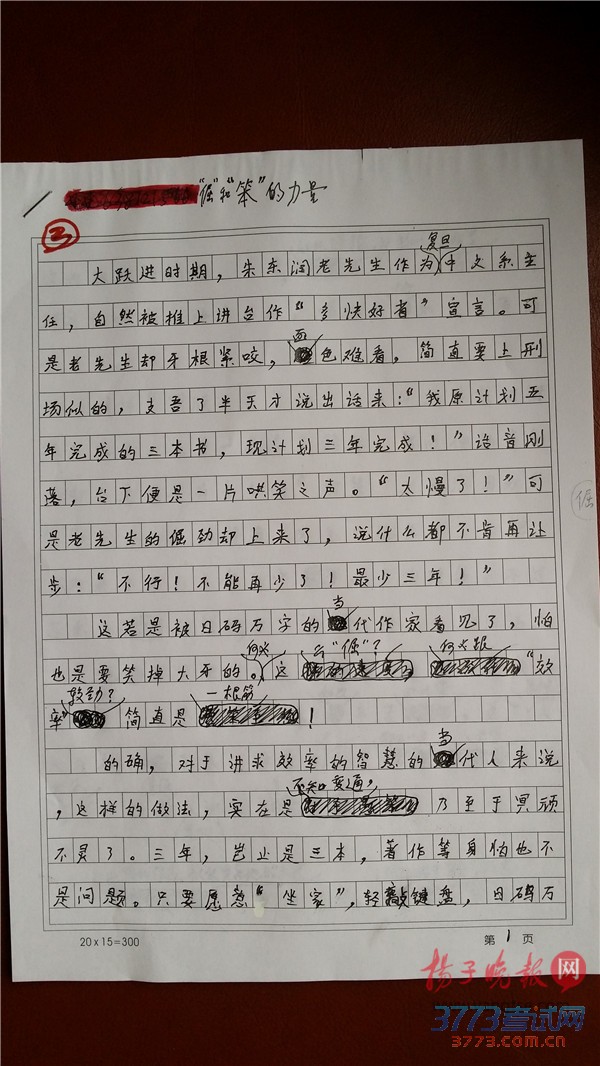 "倔"和"笨"的力量
3
复旦
大跃进时期，朱东润老先生作为中文系主
任，自然被推上讲台作"多快好省"宣言。可
是老先生却牙根紧咬，面色难看，简直要上刑
场似的，支吾了半天才说出话来："我原计划五
年完成的三本书，现计划三年完成！"话音刚
落，台下便是一片哄笑之声。"太慢了！"可
是老先生的倔劲却上来了，说什么都不肯再让
倔
步："不行！不能再少了！最少三年！"
这若是被日码万字的当代作家看见了，怕
也是要笑掉大牙的。何必这么"倔"？何必跟"效
率"较劲？简直是一根筋！
的确，对于讲求效率的智慧的当代人来说
，这样的做法，实在是不知变通，乃至于冥顽
不灵了。三年，岂止是三本，著作等身怕也不
是问题。只要愿意"坐家"，轻敲键盘，日码万
20×15=300
第 1 页
扬子晚报网
3773考试网
3773.com.cn